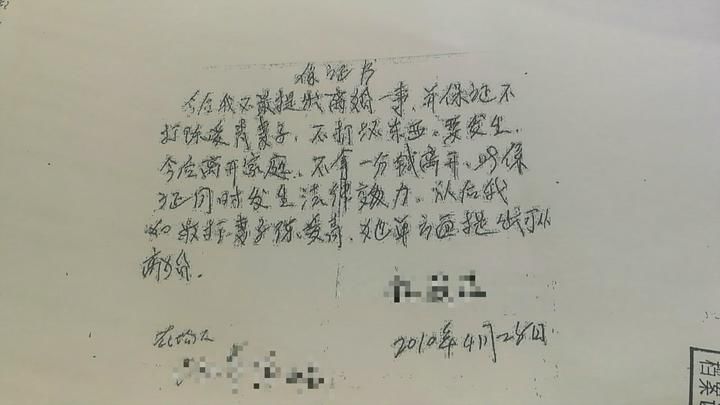 保证书
今后我不敢提出离婚一事，并保证不
打陈爱青妻子，不打坏东西。要发生，
今后离开家庭，不拿一分钱离开，此保
证同时发生法律效力。从后我
如敢打妻子陈爱青，她单方面提出可以
离婚。
2010年4月28日
档案